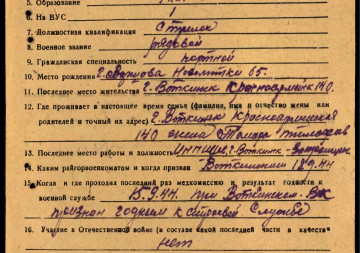 5. Образование
6. На ВУС
7. Должностная квалификация Стрелок
8. Военное звание рядовой
9. Гражданская специальность портной
10. Место рождения
11. Последнее место жительства г. Воткинск Красноармейск 140.
12. Где проживает в настоящее время семья (фамилия, имя и отчество жены или
родителей и точный их адрес) г. Воткинск Красноармейская
140 жена
13. Последнее место работы и должность г. Воткинск
14. Каким райгорвоенкоматом и когда призван Воткинским 18.9.44
15. Когда и где проходил последний раз медкомиссию и результат годности к
военной службе 15.9.44. при Воткинском ВК
признан годным к строевой службе
16. Участие в Отечественной войне (в составе какой последней части и в качестве
нет